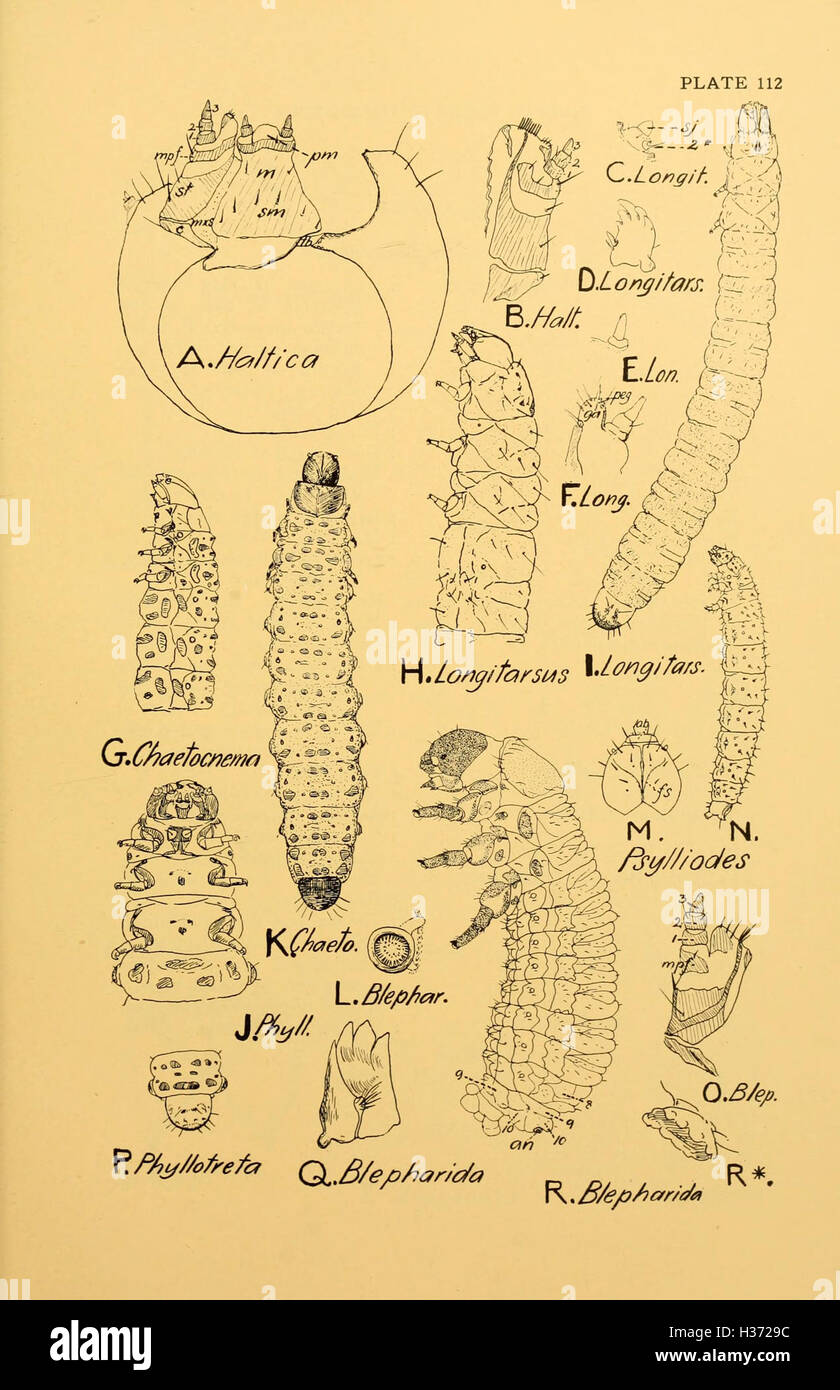 PLATE 112
3
2
1
mpf
pm
st
m
mxs
sm
c
A.Haltica
3
2
B.Halt.
sj
2*
C.Longit.
D.Longitars.
E.Lon.
peg
ga
F.Long.
G.Chaetocnema
H.Longitarsus
I.Longitars.
J.Phyll.
K.Chaeto.
L.Blephar.
fs
M.
N.
Psylliodes
3
2
1
mpf
O.Blep.
P.Phyllotreta
Q.Blepharida
9
8
9
10
an
10
R.Blepharida
R*.
alamy
Image ID: H3729C
www.alamy.com